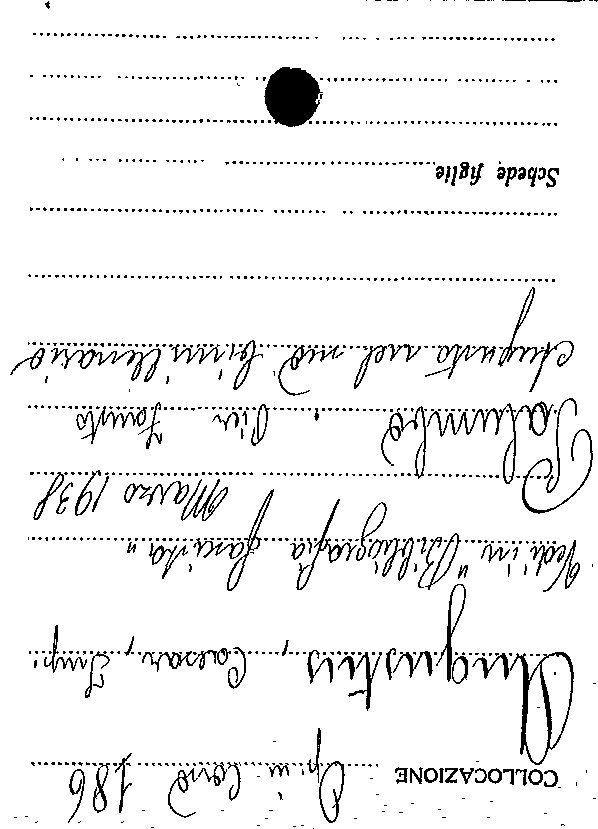 COLLOCAZIONE Op. in Cons 186
Augustus, Caesar, Imp.
Vedi in "Bibliografia fascista"
Marzo 1938
Palumbo, Pier Fausto
Augusto nel suo bimillenario
Schede figlie